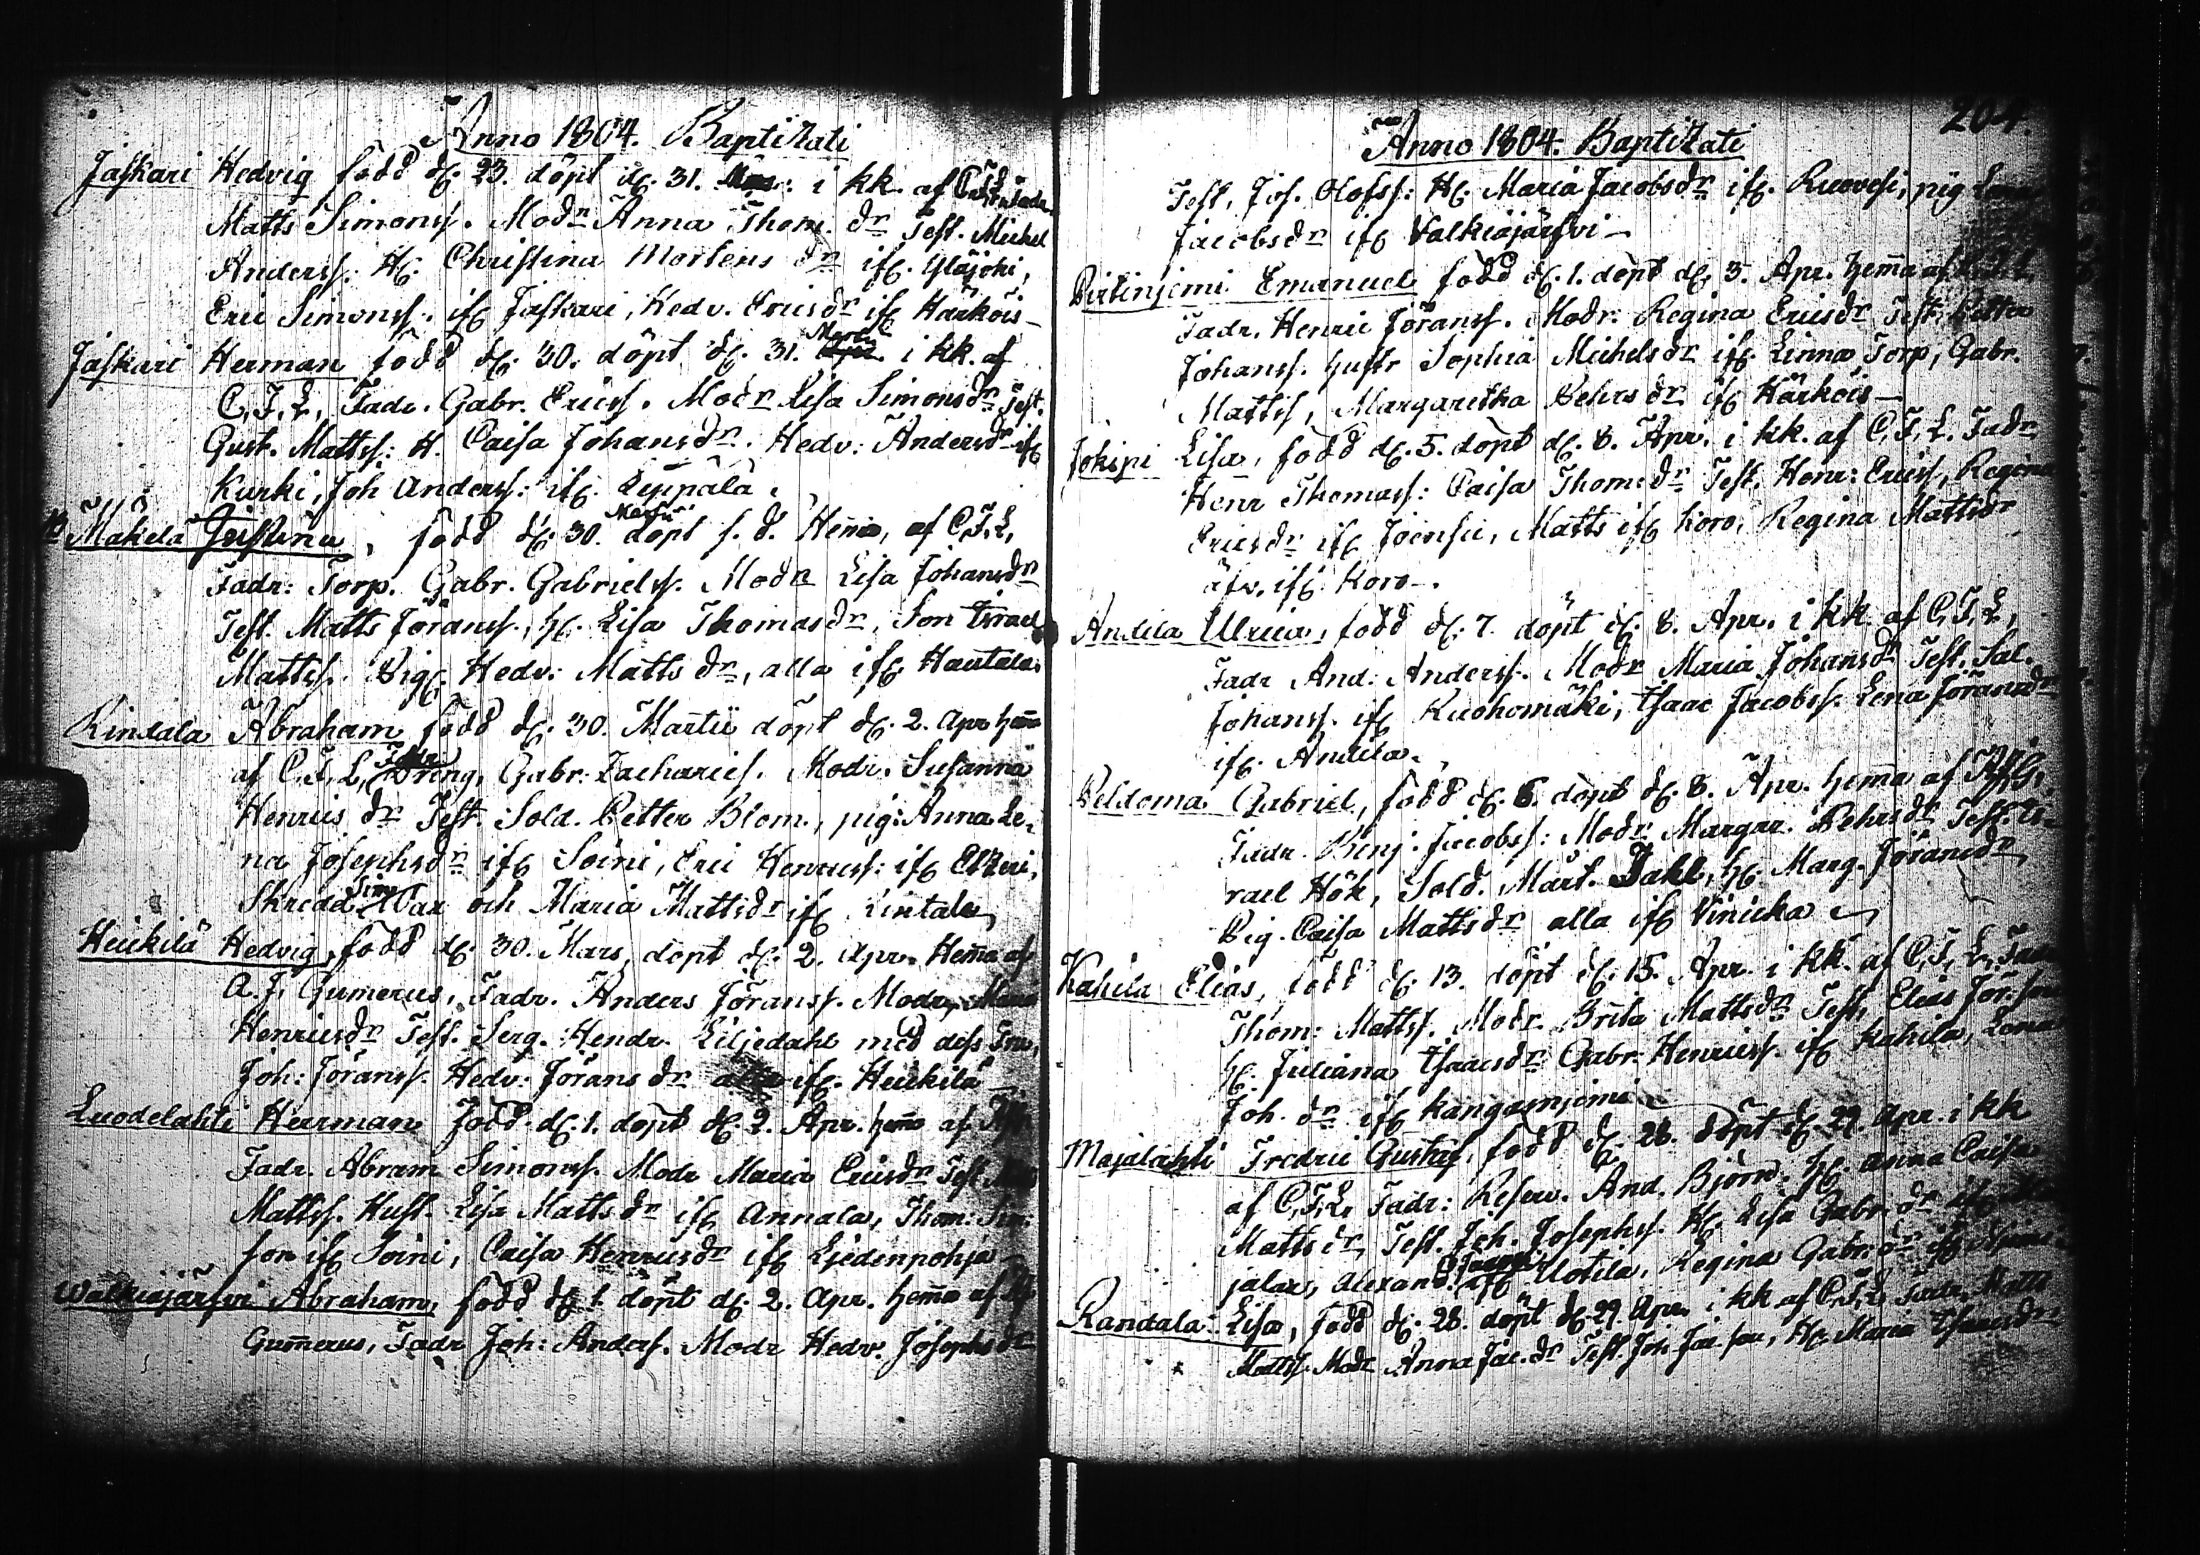 Anno 1804. Baptizati
Jaskari Hedvig född d. 23. döpt d. 31. Mars: i kk. af C.F.L. Fadr.
Matts Simonss. Modr Anna Thom. dr Test. Michel
Anderss. H. Christina Mortens dr ifr. Yläjoki,
Eric Simonss. ifr Jaskari, Hedv. Ericsdr ifr Härköis –
Jaskari Herman född d. 30. döpt d. 31. Martii i kk. af
C.F.L. Fadr. Gabr. Ericss. Modr Lisa Simonsdr Test.
Gust. Mattss: H. Caisa Johansdr. Hedv: Andersdr ifr
Kurki, Joh Anderss: ifr. Seppälä.
B Mäkelä Justina, född d. 30. Martii döpt s. d. Hema, af C.F.L.
Fadr: Torp. Gabr. Gabrielss. Modr Lisa Johansdr
Test. Matts Jöranss, H. Lisa Thomasdr, Son Israel
Mattss. Pig. Hedv: Matts dr, alla ifr Hautala.
Rindala Abraham född d. 30. Martii döpt d. 2. Apr hema
af C.F.L. Fadr Dreng, Gabr: Zachariess. Modr. Susanna
Henrics dr Test. Sold. Petter Blom, pig: Anna Le-
na Josephsdr ifr Soini, Eric Henricss: ifr Etzeri,
Skredd Sim War och Maria Mattsdr ifr Rintala,
Heickilä Hedvig, född d. 30. Mars, döpt d. 2. Apr. Hema af
A.J. Gumerus, Fadr. Anders Jöranss. Modr, Maria
Henricsdr Test. Serg. Hendr. Liljedahl med dess Fru,
Joh: Jöranss. Hedv: Jörans dr alla ifr. Heickilä –
Luodelahti Herman född d. 1. döpt d. 2. Apr. hema af
Fadr. Abram Simonss. Modr Maria Ericsdr Test
Mattss. Hust. Lisa Matts dr ifr Annala, Thom: Sim:
son ifr Soini, Caisa Henricsdr ifr Liedenpohja –
Walkiajärfvi Abraham, född d 1. döpt d. 2. Apr. hema af
Gumerus, Fadr Joh: Anders. Modr Hedv. Josephs dr
204.
Anno 1804. Baptizati
Test. Jos. Olofss: H. Maria Jacobsdr ifr. Ruovesi, pig Lena
Jacobsdr ifr Valkiajärfvi –
Pirtinjemi Emanuel född d. 1. döpt d. 3. Apr. hema af C.F.L.
Fadr. Henric Jöranss. Modr: Regina Ericsdr Test. Petter
Johanss. hustr Sophia Michelsdr ifr. Linna Torp, Gabr.
Mattss, Margaretha Pehrsdr ifr Härköis –
Jokipi Lisa, född d. 5. döpt d. 8. Apr. i kk. af C.F.L. Fadr
Henr Thomass: Caisa Thomsdr Test. Henr: Ericss, Regina
Ericsdr ifr Joensu, Matts ifr Koro, Regina Mattsdr
äfv. ifr Koro –.
Andila Ulrica, född d. 7. döpt d. 8. Apr. i kk. af C.F.L,
Fadr And: Anderss. Modr Maria Johansdr Test. Sal.
Johanss. ifr Kuohomäki, Isaac Jacobss. Lena Jöransdr
ifr. Andila.
Peldoma Gabriel, född d. 6. döpt d. 8. Apr. hema af
Fadr. Benj. Jacobss: Modr Margar. Pehrsdr Test. Is-
rael Hök, Sold. Märt. Dahl, H. Marg. Jöransdr
Pig. Caisa Mattsdr alla ifr Vinicka
Kahila Elias, född d. 13. döpt d. 15. Apr. i kk. af C.F.L. Fadr
Thom: Mattss. Modr Brita Mattsdr Test. Elias Jör: son
H. Juliana Isacsdr Gabr: Henricss. ifr Kahila, Lena
Joh. dr ifr Kangasnjemi
Majalahti Fredric Gustaf, född d. 28. döpt d. 29. Apr. i kk
af C.F.L. Fadr: Reserv. And. Björn: H Anna Caisa
Matts dr, Test. Joh. Josephss. H. Lisa Gabr: dr ifr
jalax, Alexand. ifr Uotila, Regina Gabr: dr ifr
Randala Lisa, född d. 28. döpt d. 29. Apr. i kk af C.F.L. Fadr. Matts
Mattss. Modr Anna Jac. dr Test. Joh. Jac. son, H. Maria Isacsdr